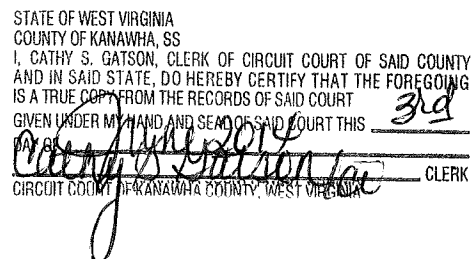 STATE OF WEST VIRGINIA
COUNTY OF KANAWHA, SS
I, CATHY S. GATSON, CLERK OF CIRCUIT COURT OF SAID COUNTY
AND IN SAID STATE, DO HEREBY CERTIFY THAT THE FOREGOING
IS A TRUE COPY FROM THE RECORDS OF SAID COURT
GIVEN UNDER MY HAND AND SEAL OF SAID COURT THIS 3rd
DAY OF June 2014
Cathy S Gatson CLERK
CIRCUIT COURT OF KANAWHA COUNTY, WEST VIRGINIA